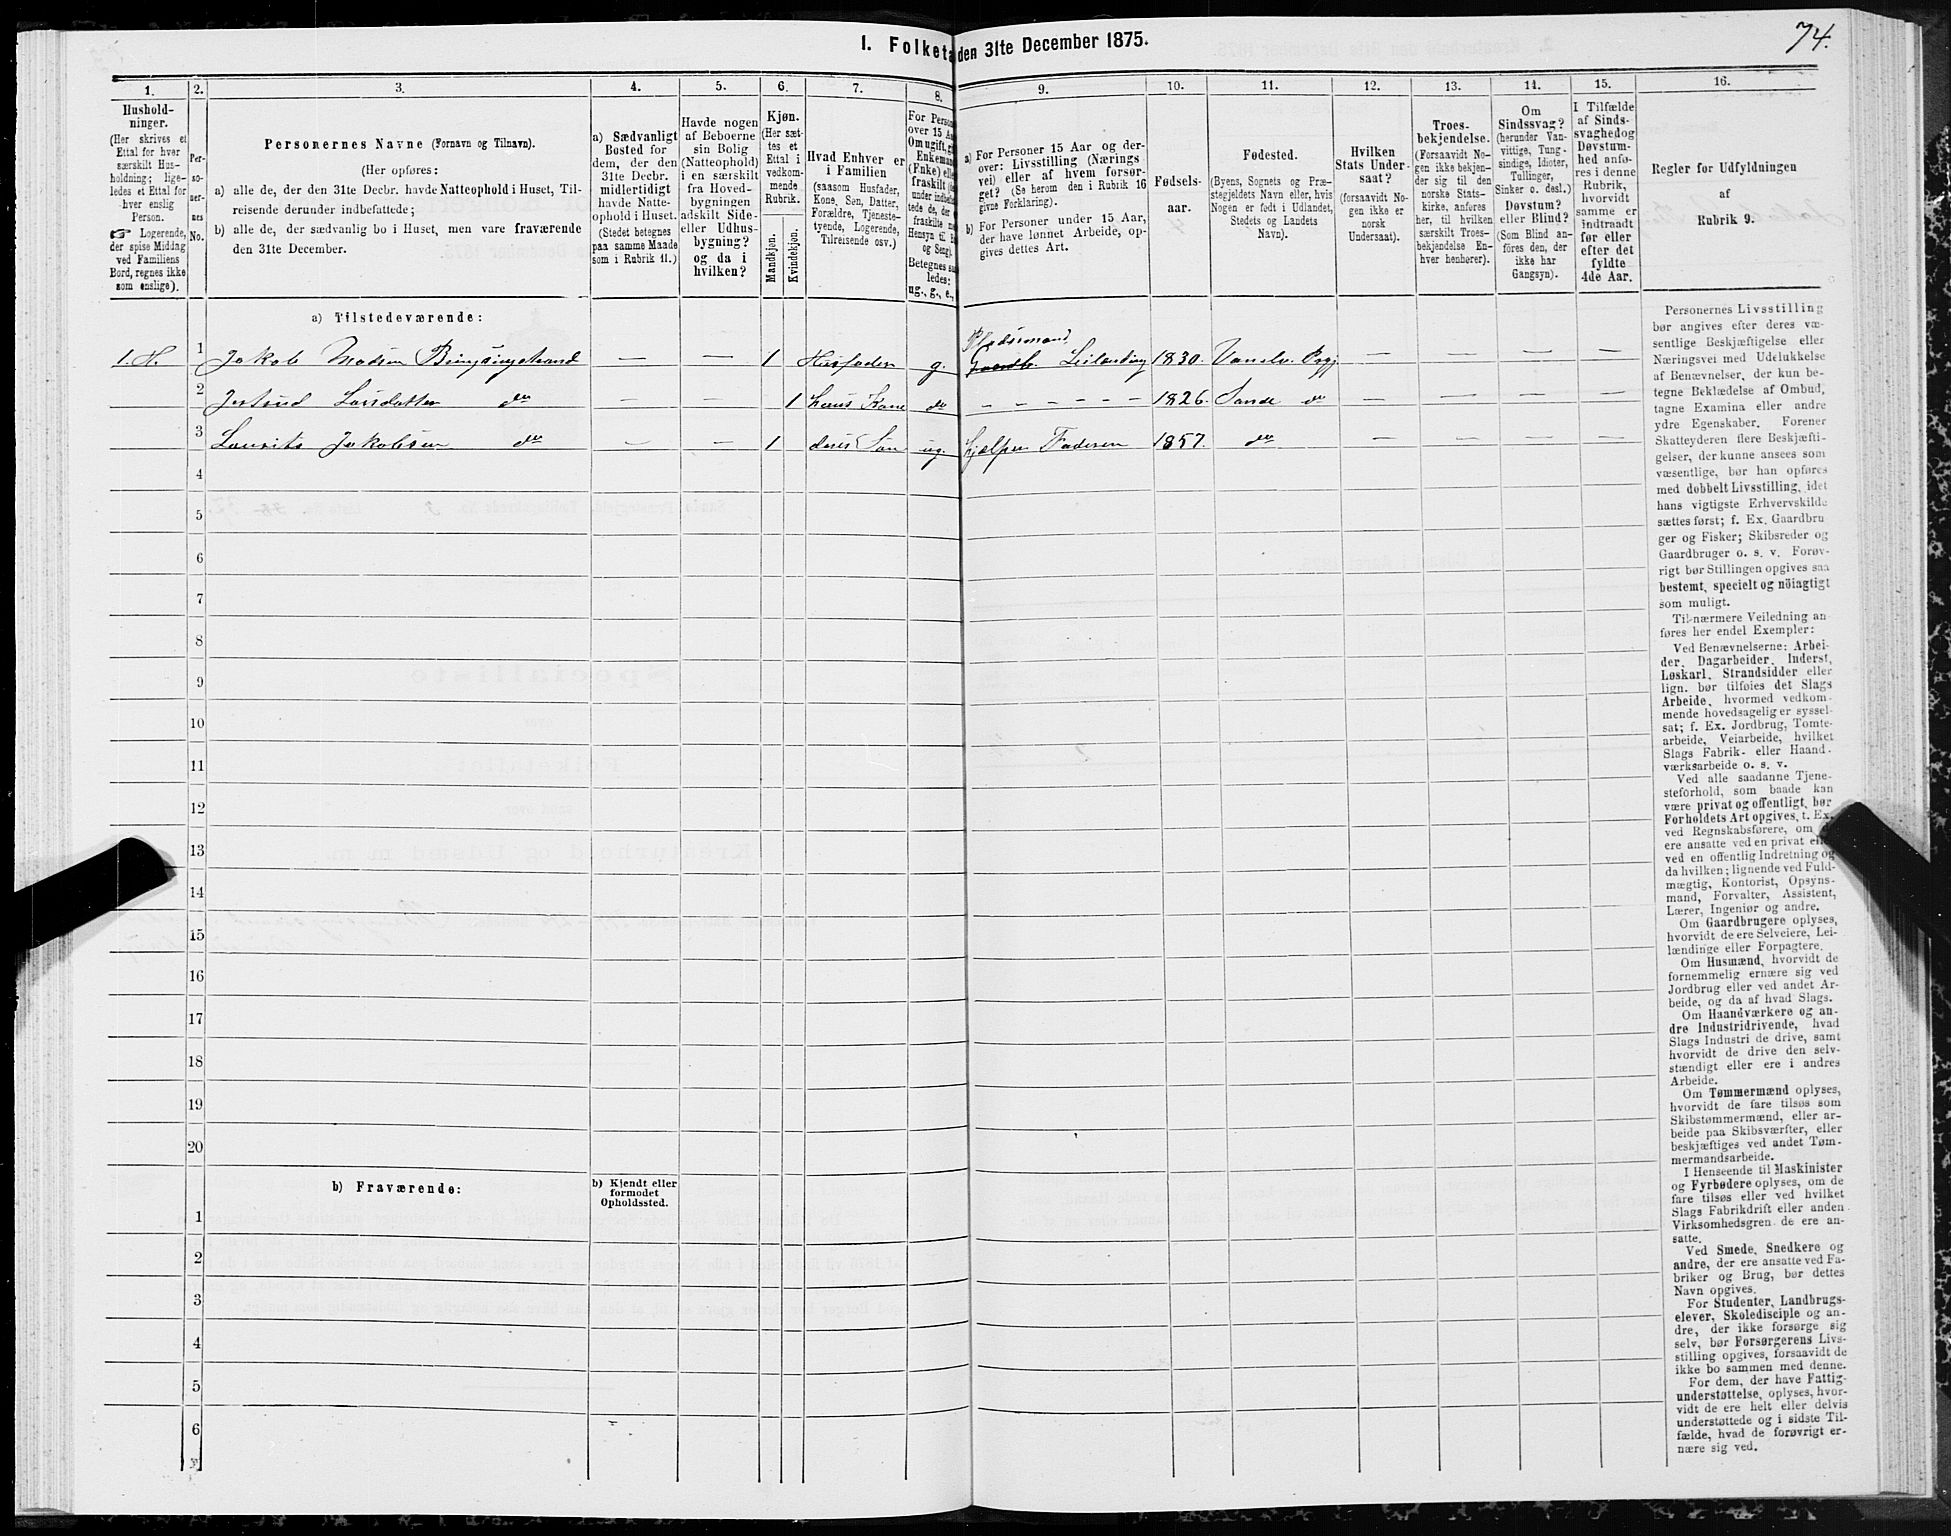 74.
I. Folketa den 31te December 1875.
1. 2. 3. 4. 5. 6. 7. 8. 9. 10. 11. 12. 13. 14. 15. 16.
Hushold-
ninger.
(Her skrives et
Ettal for hver
særskilt Hus-
holdning; lige-
ledes et Ettal for
hver enslig
Person.
☞ Logerende,
der spise Middag
ved Familiens
Bord, regnes ikke
som enslige).
Per-
so-
ner-
nes
No.
Personernes Navne (Fornavn og Tilnavn).
(Her opføres:
a) alle de, der den 31te Decbr. havde Natteophold i Huset, Til-
reisende derunder indbefattede;
b) alle de, der sædvanlig bo i Huset, men vare fraværende
den 31te December.
a) Sædvanligt
Bosted for
dem, der den
31te Decbr.
midlertidigt
havde Natte-
ophold i Huset.
(Stedet betegnes
paa samme Maade
som i Rubrik 11.)
Havde nogen
af Beboerne
sin Bolig
(Natteophold)
i en særskilt
fra Hoved-
bygningen
adskilt Side-
eller Udhus-
bygning?
og da i
hvilken?
Kjøn.
(Her sæt-
tes et
Ettal i
vedkom-
mende
Rubrik.
Mandkjøn.
Kvindekjøn.
Hvad Enhver er
i Familien
(saasom Husfader,
Kone, Søn, Datter,
Forældre, Tjeneste-
tyende, Logerende,
Tilreisende osv.)
For Person
over 15 Aa
Om ugift, gi
Enkeman
(Enke) elle
fraskilt (de
under indbef
tede de, der
fraskilte me
Hensyn til B
og Seng).
Betegnes sa
ledes:
ug., g., e.,
a) For Personer 15 Aar og der-
over: Livsstilling (Nærings
vei) eller af hvem forsør-
get? (Se herom den i Rubrik 16
givne Forklaring).
b) For Personer under 15 Aar,
der have lønnet Arbeide, op-
gives dettes Art.
Fødsels-
aar.
Fødested.
(Byens, Sognets og Præ-
stegjeldets Navn eller, hvis
Nogen er født i Udlandet,
Stedets og Landets
Navn).
Hvilken
Stats Under-
saat?
(forsaavidt No-
gen ikke er
norsk
Undersaat).
Troes-
bekjendelse.
(Forsaavidt No-
gen ikke bekjen-
der sig til den
norske Stats-
kirke, anføres
her, til hvilken
særskilt Troes-
bekjendelse En-
hver henhører).
Om
Sindssvag?
(herunder Van-
vittige, Tung-
sindige, Idioter,
Tullinger,
Sinker o. desl.)
Døvstum?
eller Blind?
(Som Blind an-
føres den, der
ikke har
Gangsyn).
I Tilfælde
af Sinds-
svaghedog
Døvstum-
hed anfø-
res i denne
Rubrik,
hvorvidt
samme er
indtraadt
før eller
efter det
fyldte
4de Aar.
Regler for Udfyldningen
af
Rubrik 9.
a) Tilstedeværende:
Pladsmand
1. H. 1 Jakob Madsen — — 1 Husfader g. Leilending 1830. Vanelv. Pgj — — — —
2 Jertrud Larsdatter do — — 1 hans Kone do - - - - - - 1826. Sande do — — — —
3 Laurits Jakobsen do — — 1 deres Søn ug. hjelper Faderen 1857. do — — — —
4
5
6
7
8
9
10
11
12
13
14
15
16
17
18
19
20
b) Fraværende:
b) Kjendt eller
formodet
Opholdssted.
1
2
3
4
5
6
Personernes Livsstilling
bør angives efter deres væ-
sentlige Beskjæftigelse eller
Næringsvei med Udelukkelse
af Benævnelser, der kun be-
tegne Beklædelse af Ombud,
tagne Examina eller andre
ydre Egenskaber. Forener
Skatteyderen flere Beskjæfti-
gelser, der kunne ansees som
væsentlige, bør han opføres
med dobbelt Livsstilling, idet
hans vigtigste Erhvervskilde
sættes først; f. Ex. Gaardbru
ger og Fisker; Skibsreder og
Gaardbruger o. s. v. Forøv-
rigt bør Stillingen opgives saa
bestemt, specielt og nöiagtigt
som muligt.
Til nærmere Veiledning an-
føres her endel Exempler:
Ved Benævnelserne: Arbei-
der, Dagarbeider, Inderst,
Løskarl, Strandsidder eller
lign. bør tilføies det Slags
Arbeide, hvormed vedkom-
mende hovedsagelig er syssel-
sat; f. Ex. Jordbrug, Tomte-
arbeide, Veiarbeide, hvilket
Slags Fabrik- eller Haand-
værksarbeide o. s. v.
Ved alle saadanne Tjene-
steforhold, som baade kan
være privat og offentligt, bør
Forholdets Art opgives, t. Ex.
ved Regnskabsførere, om
ere ansatte ved en privat elle
ved en offentlig Indretning og
da hvilken; lignende ved Fuld-
mægtig, Kontorist, Opsyns-
mand, Forvalter, Assistent,
Lærer, Ingeniør og andre.
Om Gaardbrugere oplyses,
hvorvidt de ere Selveiere, Lei-
lændinge eller Forpagtere.
Om Husmænd, hvorvidt de
fornemmelig ernære sig ved
Jordbrug eller ved andet Ar-
beide, og da af hvad Slags.
Om Haandværkere og an-
dre Industridrivende, hvad
Slags Industri de drive, samt
hvorvidt de drive den selv-
stændigt eller ere i andres
Arbeide.
Om Tømmermænd oplyses,
hvorvidt de fare tilsøs som
Skibstømmermænd, eller ar-
beide paa Skibsværfter, eller
beskjæftiges ved andet Tøm-
mermandsarbeide.
I Henseende til Maskinister
og Fyrbødere oplyses, om de
fare tilsøs eller ved hvilket
Slags Fabrikdrift eller anden
Virksomhedsgren de ere an-
satte.
Ved Smede, Snedkere og
andre, der ere ansatte ved Fa-
briker og Brug, bør dettes
Navn opgives.
For Studenter, Landbrugs-
elever, Skoledisciple og an-
dre, der ikke forsørge sig
selv, bør Forsørgerens Livs-
stilling opgives, forsaavidt de
ikke bo sammen med denne.
For dem, der have Fattig-
understøttelse, oplyses, hvor-
vidt de ere helt eller delvis
understøttede og i sidste Til-
fælde, hvad de forøvrigt er-
nære sig ved.